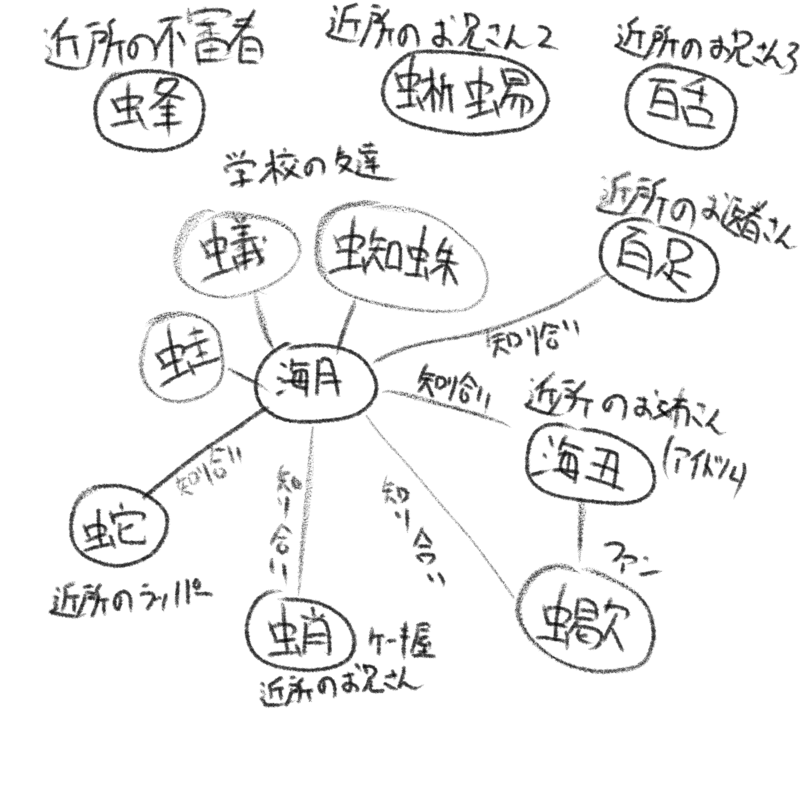 近所の不審者
蜂
近所のお兄さん2
蜥蜴
近所のお兄さん3
百舌
学校の友達
蟻
蜘蛛
蛙
海月
近所のお医者さん
百足
知り合い
知り合い
近所のお姉さん
(アイドル)
海丑
知り合い
蛇
近所のラッパー
知り合い
知り合い
ファン
蛸
ケーキ屋
近所のお兄さん